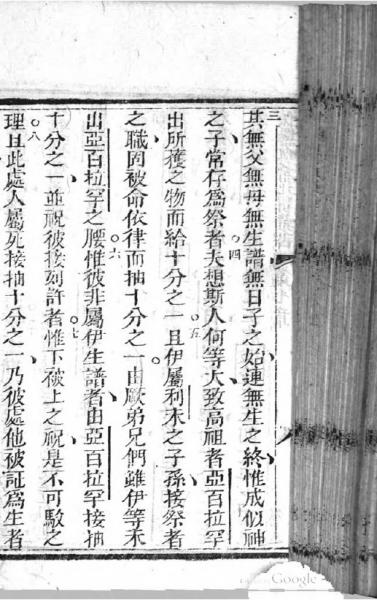 三其無父無母無生譜無日子之始連無生之終惟成似神
之子常存爲祭者四夫想斯人何等大致高祖者亞百拉罕
出所獲之物而給十分之一五且伊屬利未之子孫接祭者
之職因被命依律而抽十分之一由厥弟兄們雖伊等未
出亞百拉罕之腰六惟彼非屬伊生譜者由亞百拉罕接抽
十分之一並祝彼接刻許者七惟下被上之祝是不可駁之
理八且此處人屬死接抽十分之一乃彼處他被証爲生者
Google